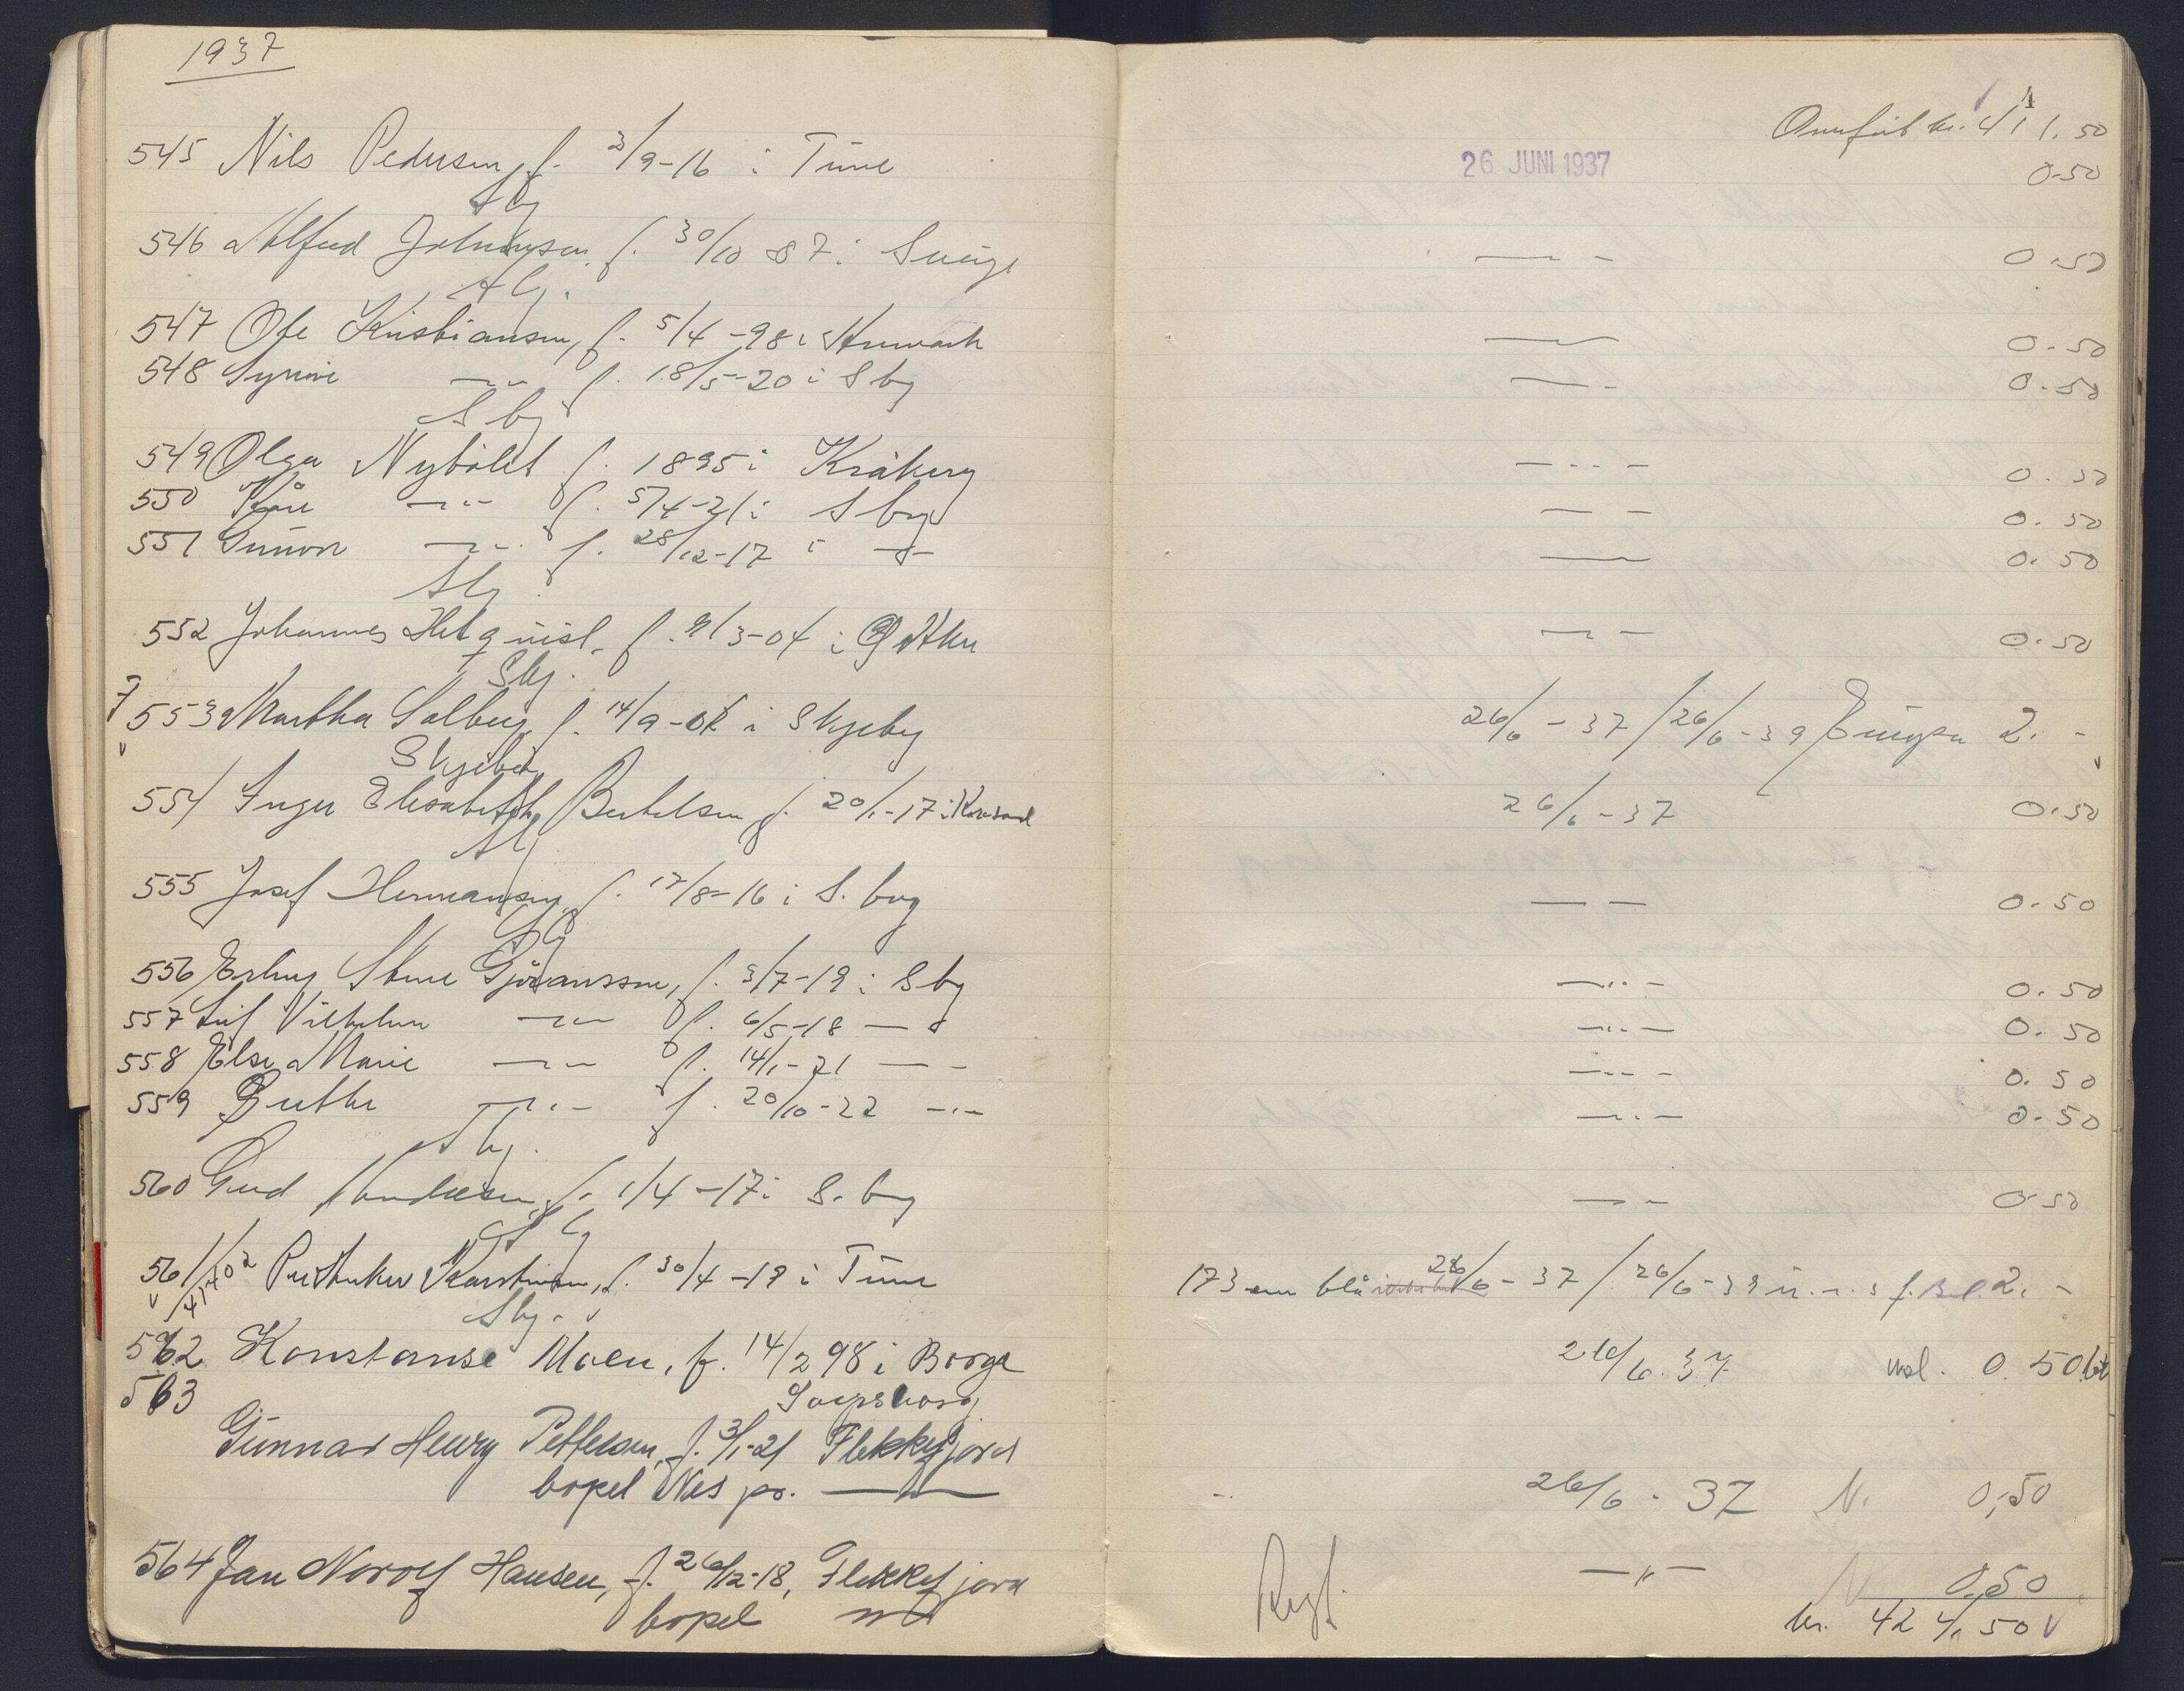 1937
545 Nils Pedersen, f. 3/9-16 i Tune
Sbg
546 Alfred Johansen f. 30/10 87 i Sverige
Sbg.
547 Ole Kristiansen, f. 5/4-98 i
548 Synnøve —"— f. 18/5-20 i Sbg
Sbg
549 Olga Nybølet f. 1895 i Kråkerøy
550 Kåre —"— f. 5/4-21 i Sbrg
551 Gunvor —"— f. 28/12-17 i —"—
Sbg.
552 Johannes f. 9/3-04 i
Sbg.
553 Martha Solberg, f. 14/9-04 i Skjeberg
Skjeberg
554 Inger Elisabeth Bertelsen f. 20/1-17 i
Sbg
555 Josef Hermansen, f. 17/8-16 i S.borg
Sbg
556 Erling Sture Gjøransson, f. 3/7-19 i Sbg
557 Leif Vilhelm —"— f. 6/5-18 —"—
558 Else Marie —"— f. 14/1-21 —"—
559 Grethe —"— f. 20/10-22 —"—
Sbg.
560 Gerd f. 1/4-17 i S.borg
Sbg
561 Karstensen, f. 30/4-19 i Tune
Sbg.
562 Konstanse Moen, f. 14/2 98 i Borge
Sarpsborg
563
Gunnar Henry Pettersen, f. 3/1-21 Flekkefjord
bopel Nes pr. —"—
564 Jan Norolf Hansen, f. 26/2-18, Flekkefjord
bopel —"—
Overført kr. 411.50
26 JUNI 1937 0.50
—"— 0.50
—"— 0.50
—"— 0.50
—"— 0.50
—"— 0.50
—"— 0.50
—"— 0.50
26/6-37/26/6-39 Europa 2.-
26/6-37 0.50
—"— 0.50
—"— 0.50
—"— 0.50
—"— 0.50
—"— 0.50
—"— 0.50
173 cm blå 26/6-37/26/6-39 2.-
26/6.37 0.50
26/6.37 N. 0,50
—"— N 0,50
kr. 424,50